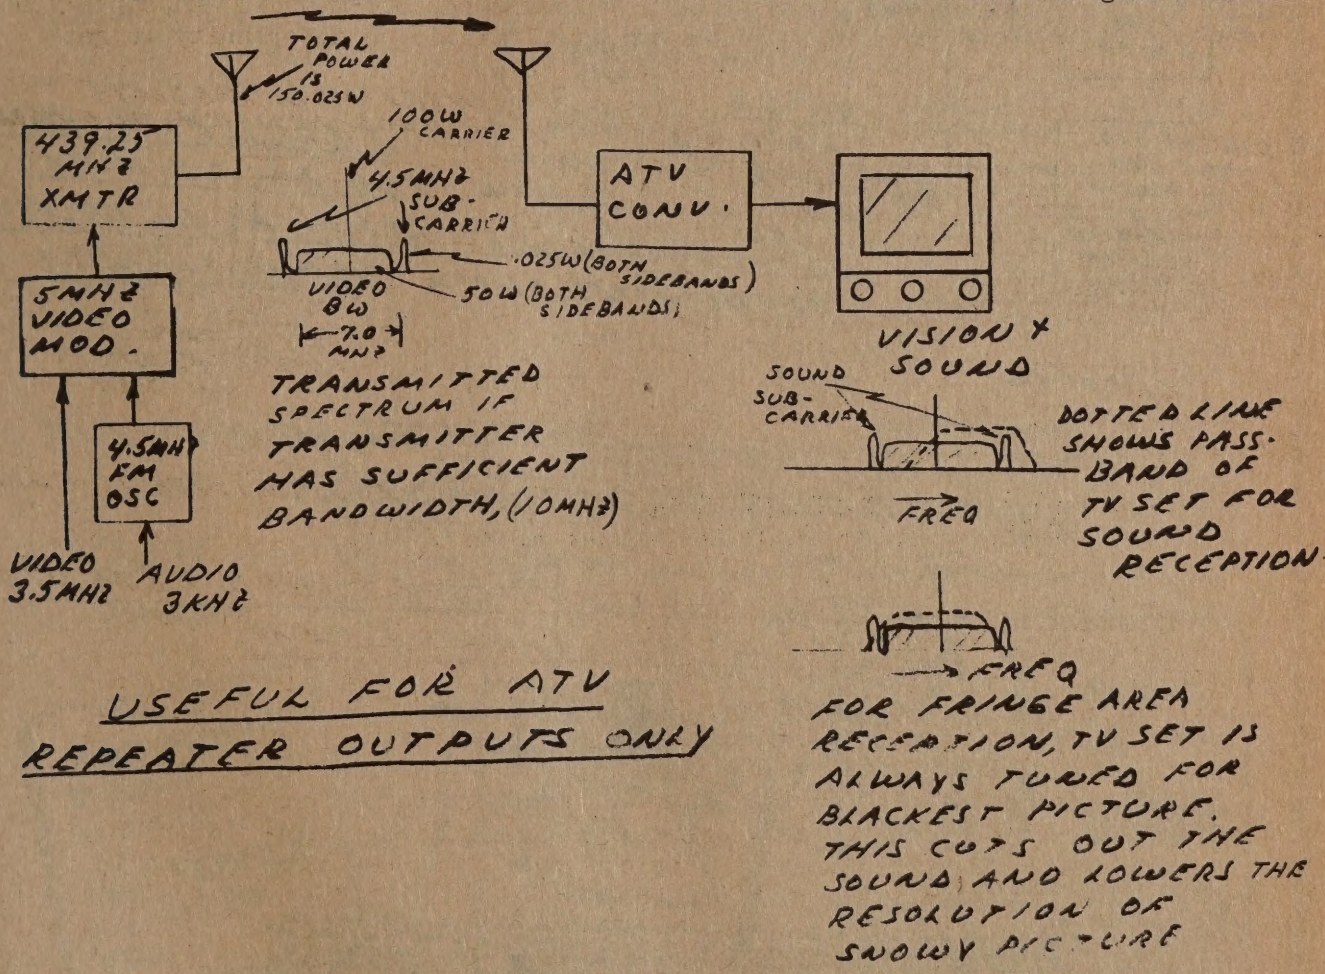 TOTAL
POWER
IS
150.025W
439.25
MHZ
XMTR
100W
CARRIER
4.5MHZ
SUB-
CARRIER
.025W (BOTH
SIDEBANDS)
50W (BOTH
SIDEBANDS)
VIDEO
BW
7.0
MHZ
5MHZ
VIDEO
MOD.
4.5MHZ
FM
OSC
VIDEO
3.5MHZ
AUDIO
3KHZ
TRANSMITTED
SPECTRUM IF
TRANSMITTER
HAS SUFFICIENT
BANDWIDTH, (10MHZ)
ATV
CONV.
VISION &
SOUND
SOUND
SUB-
CARRIER
FREQ
DOTTED LINE
SHOWS PASS-
BAND OF
TV SET FOR
SOUND
RECEPTION.
FREQ
FOR FRINGE AREA
RECEPTION, TV SET IS
ALWAYS TUNED FOR
BLACKEST PICTURE.
THIS CUTS OUT THE
SOUND AND LOWERS THE
RESOLUTION OF
SNOWY PICTURE
USEFUL FOR ATV
REPEATER OUTPUTS ONLY